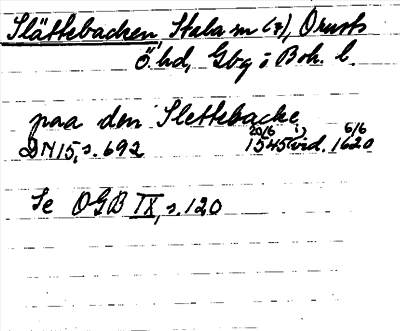 Slättebacken, Stala sn (?), Orusts
Ö. hd, Gbg o Boh. l.
paa den Slettebacke
20/6 6/6
DN 15, s. 692 1545 (i vid. 1620
Se OGB IX, s. 120